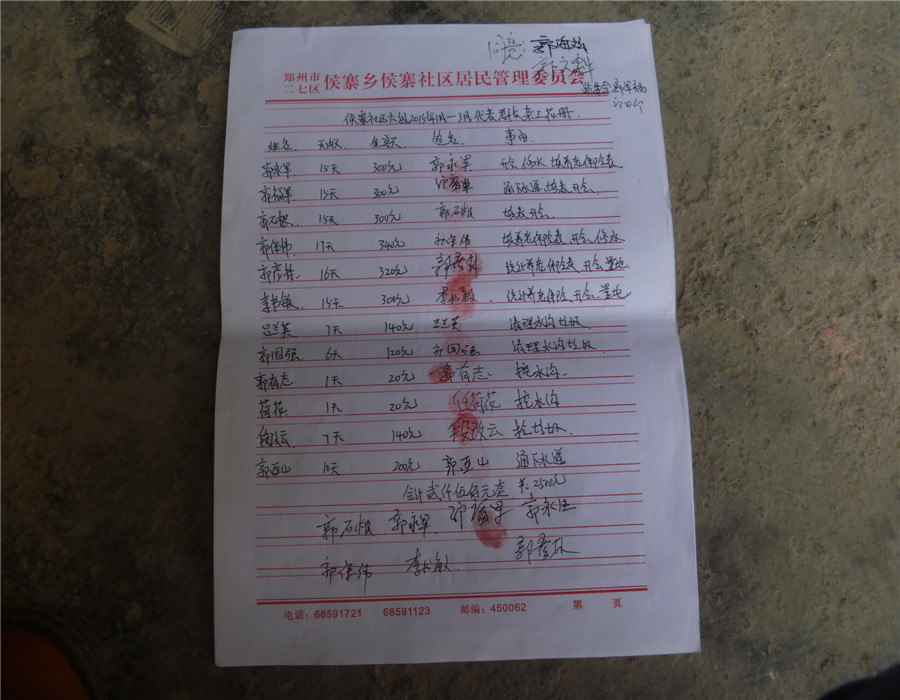 同意：郭海松
郑州市二七区 侯寨乡侯寨社区居民管理委员会
侯寨社区六组2015年1月—3月代表 杂工花册.
姓名. 天数 金额 签名. 事由
郭永军. 15天 300元 郭永军 开会 修水 填养老保险表
郭福军. 15天 300元 郭福军 通下水道 填表 开会
郭石根 15天 300元 郭石根 填表 开会.
郭保伟 17天 340元 郭保伟 填养老保险表 开会 修水
郭彦林. 16天 320元 郭彦林 统计养老保险表 开会 量地
李书敏. 15天 300元 李书敏. 统计养老保险 开会 量地
吕兰英 7天 140元 吕兰英 清理水沟垃圾
郭国强 6天 120元 郭国强 清理水沟垃圾
郭有志 1天 20元 郭有志 挖水沟
荷花 1天 20元 任荷花 挖水沟
段改云 7天 140元 段改云 捡垃圾.
郭西山 10天 200元 郭西山 通下水道
合计贰仟伍佰元整 共:2500元
郭石根 郭永军. 郭福军 郭永
郭保伟 李书敏. 郭彦林
电话：68591721 68591123 邮编：450062 第 页